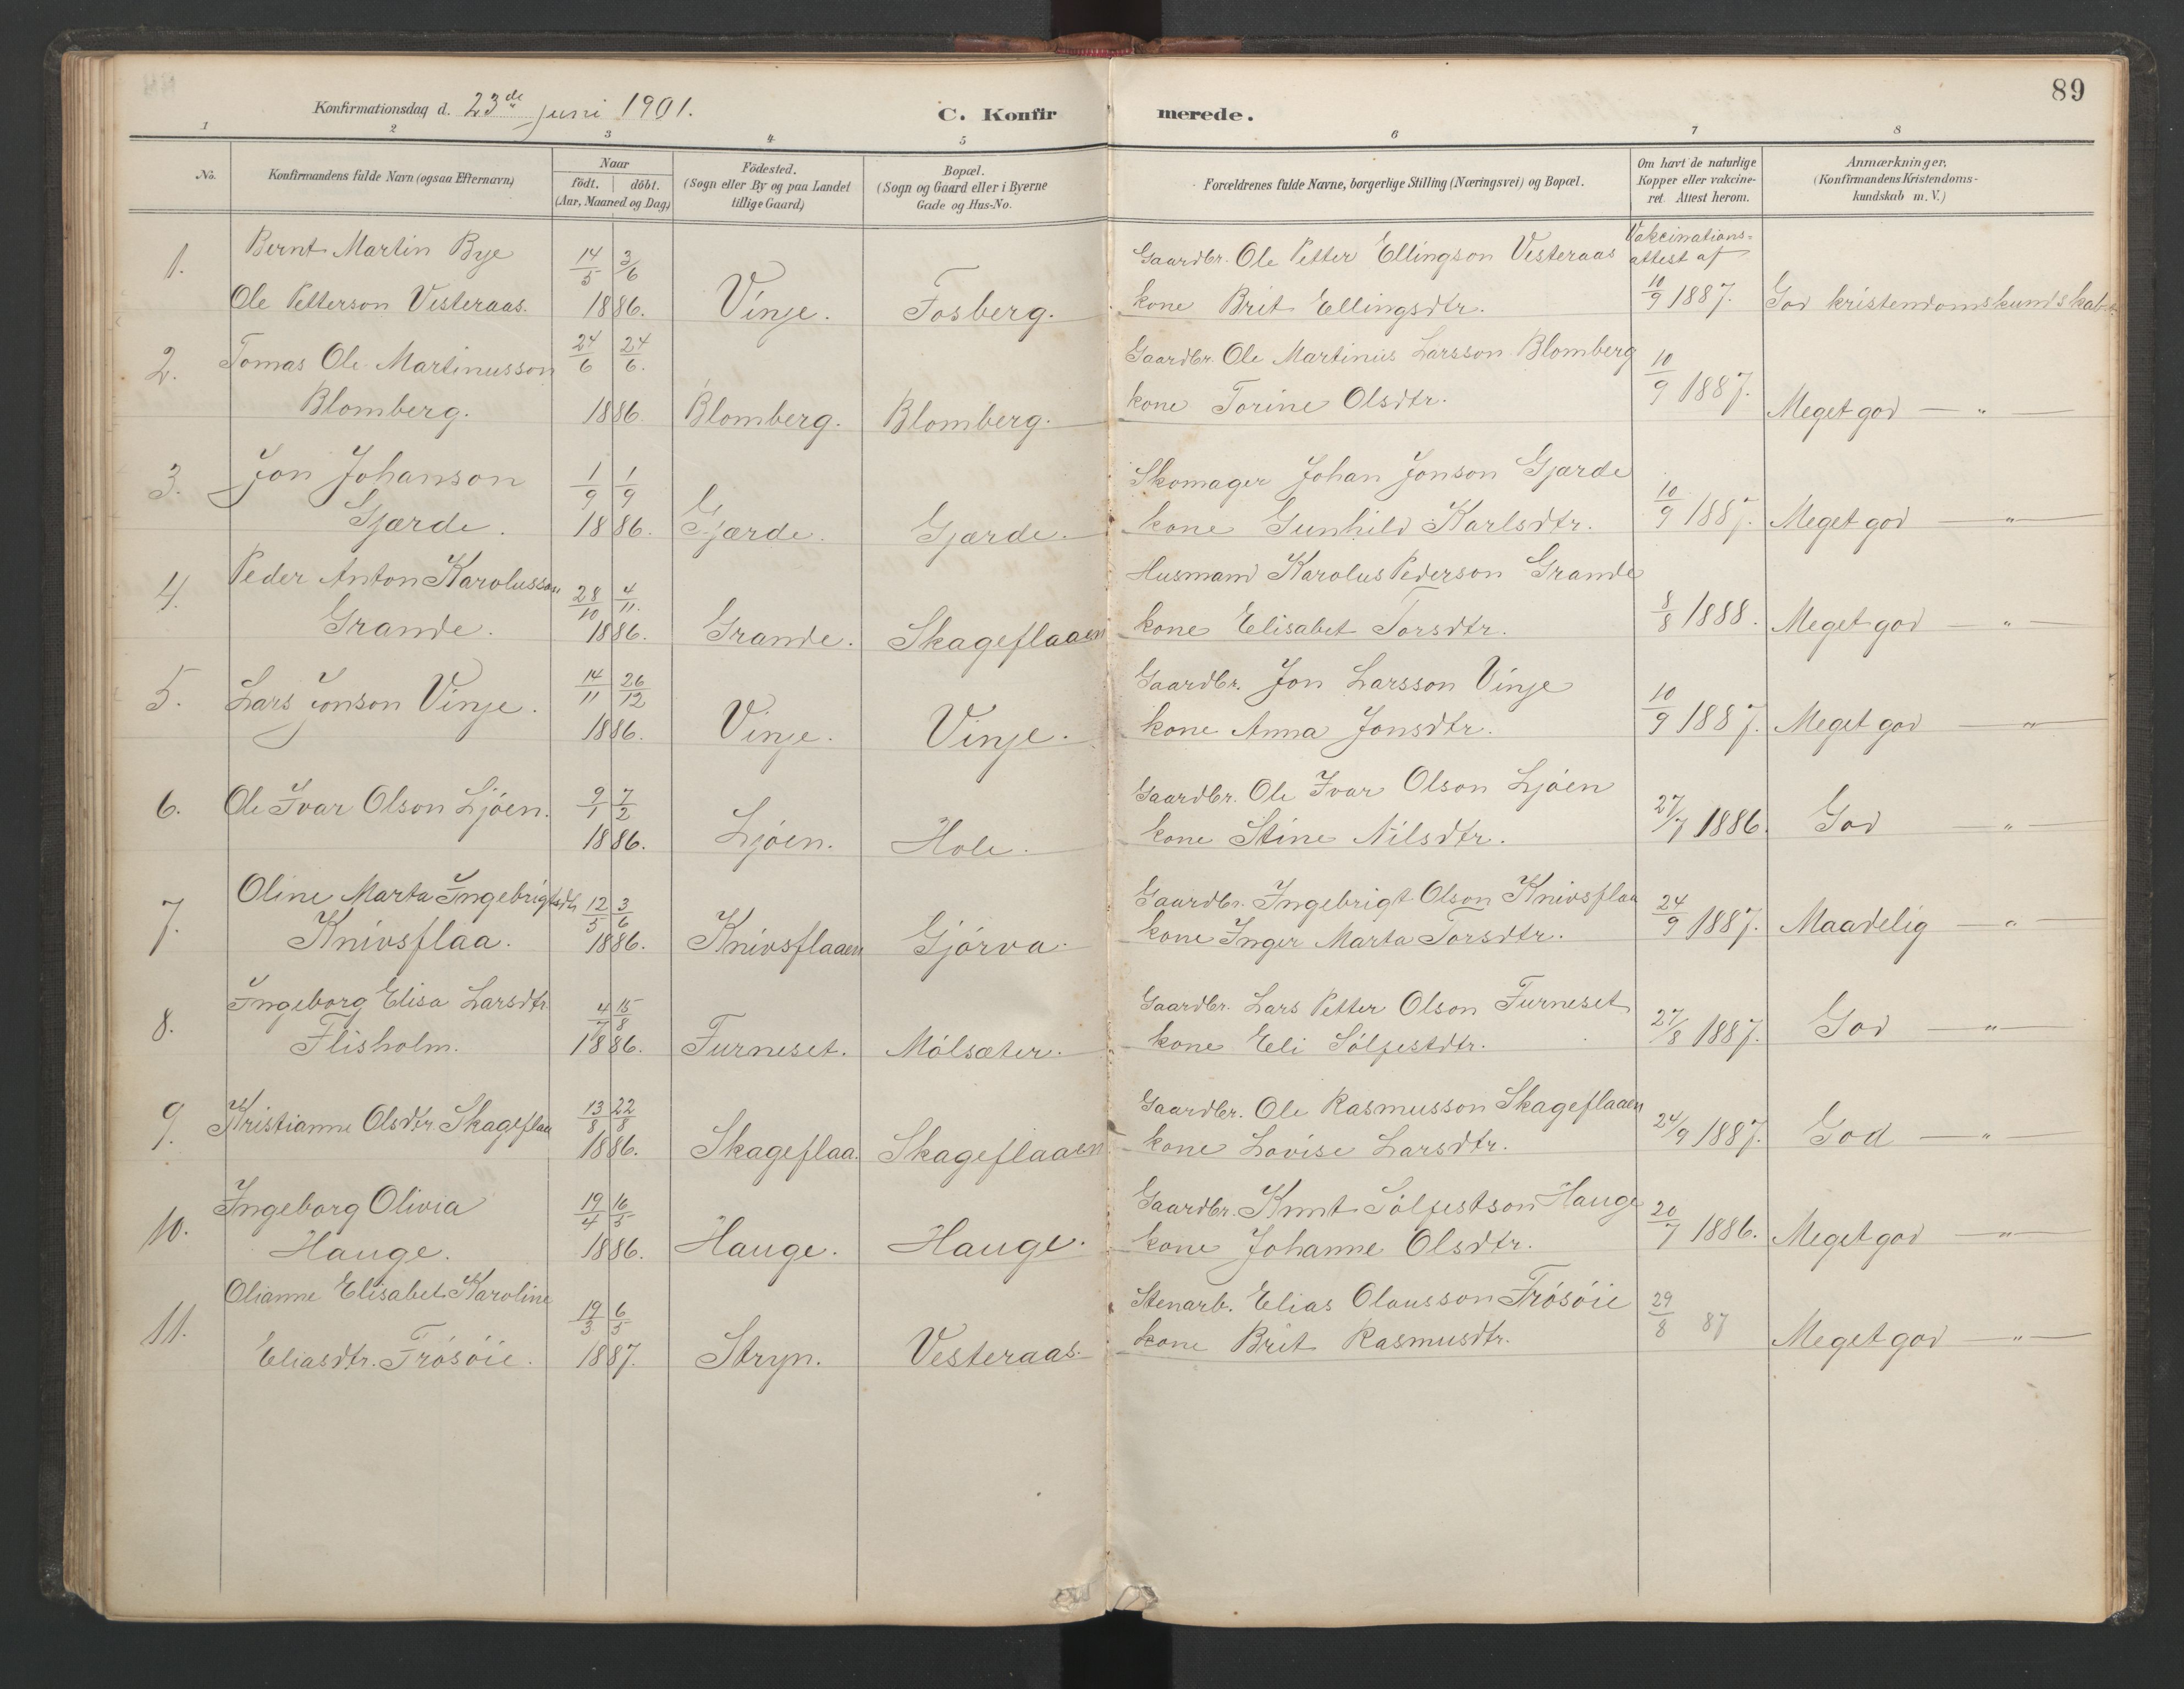 89
Konfirmationsdag d. 23de juni 1901.
C. Konfirmerede.
1 2 3 4 5 6 7 8
No.
Konfirmandens fulde Navn (ogsaa Efternavn)
Naar
födt. | döbt.
(Aar, Maaned og Dag)
Födested.
(Sogn eller By og paa Landet
tillige Gaard)
Bopæl.
(Sogn og Gaard eller i Byerne
Gade og Hus-No.
Forældrenes fulde Navne, borgerlige Stilling (Næringsvei) og Bopæl.
Om havt de naturlige
Kopper eller vakcine-
ret. Attest herom.
Anmærkninger,
(Konfirmandens Kristendoms-
kundskab m. V.)
1. Bernt Martin Bye 14/5 3/6 Gaardbr. Ole Petter Ellingson Vesteraas Vakcinations=
attest af
Ole Petterson Vesteraas. 1886. Vinje. Fosberg. kone Brit Ellingsdtr. 10/9 1887. God kristendomskundskab.
2. Tomas Ole Martinusson 24/6 24/6. Gaardbr. Ole Martinus Larsson Blomberg 10/9 1887.
Blomberg. 1886. Blomberg. Blomberg. kone Torine Olsdtr. Meget god — " —
3. Jon Johanson 1/9 1/9 Skomager Johan Jonson Gjærde
Gjærde. 1886. Gjærde. Gjærde. kone Gunhild Karlsdtr. 10/9 1887. Meget god — " —
4. Peder Anton Karolusson 28/10 4/11. Husmand Karolus Pederson Grande
Grande. 1886. Grande. Skageflaaen kone Elisabet Torsdtr. 8/8 1888. Meget god — " —
5. Lars Jonson Vinje. 14/11 26/12 Gaardbr. Jon Larsson Vinje
1886. Vinje. Vinje. kone Anna Jonsdtr. 10/9 1887. Meget god — " —
6. Ole Ivar Olson Ljöen. 9/1 7/2 Gaardbr. Ole Ivar Olson Ljöen
1886. Ljöen. Hole. kone Stine Nilsdtr. 27/7 1886. God " —
7. Oline Marta Ingebrigtsdtr 12/5 3/6 Gaardbr. Ingebrigt Olson Knivsflaa
Knivsflaa. 1886. Knivsflaaen Gjörva. kone Inger Marta Torsdtr. 24/9 1887. Maadelig — " —
8. Ingeborg Elisa Larsdtr. 4/7 15/8 Gaardbr. Lars Petter Olson Furneset
Flisholm. 1886. Furneset. Mölsæter. kone Eli Sölfestdtr. 27/8 1887. God — " —
9. Kristianne Olsdtr. Skageflaa 13/8 22/8 Gaardbr. Ole Rasmusson Skageflaaen
1886. Skageflaa. Skageflaaen kone Lovise Larsdtr. 24/9 1887. God — " —
10. Ingeborg Olivia 19/4 16/5 Gaardbr. Knut Sölfestson Hauge
Hauge. 1886. Hauge. Hauge. kone Johanne Olsdtr. 20/7 1886. Meget god — " —
11. Olianne Elisabet Karoline 19/3 6/5 Stenarb. Elias Olausson Frösöie
Eliasdtr. Frösöie. 1887. Stryn. Vesteraas. kone Brit Rasmusdtr. 29/8 87 Meget god — " —